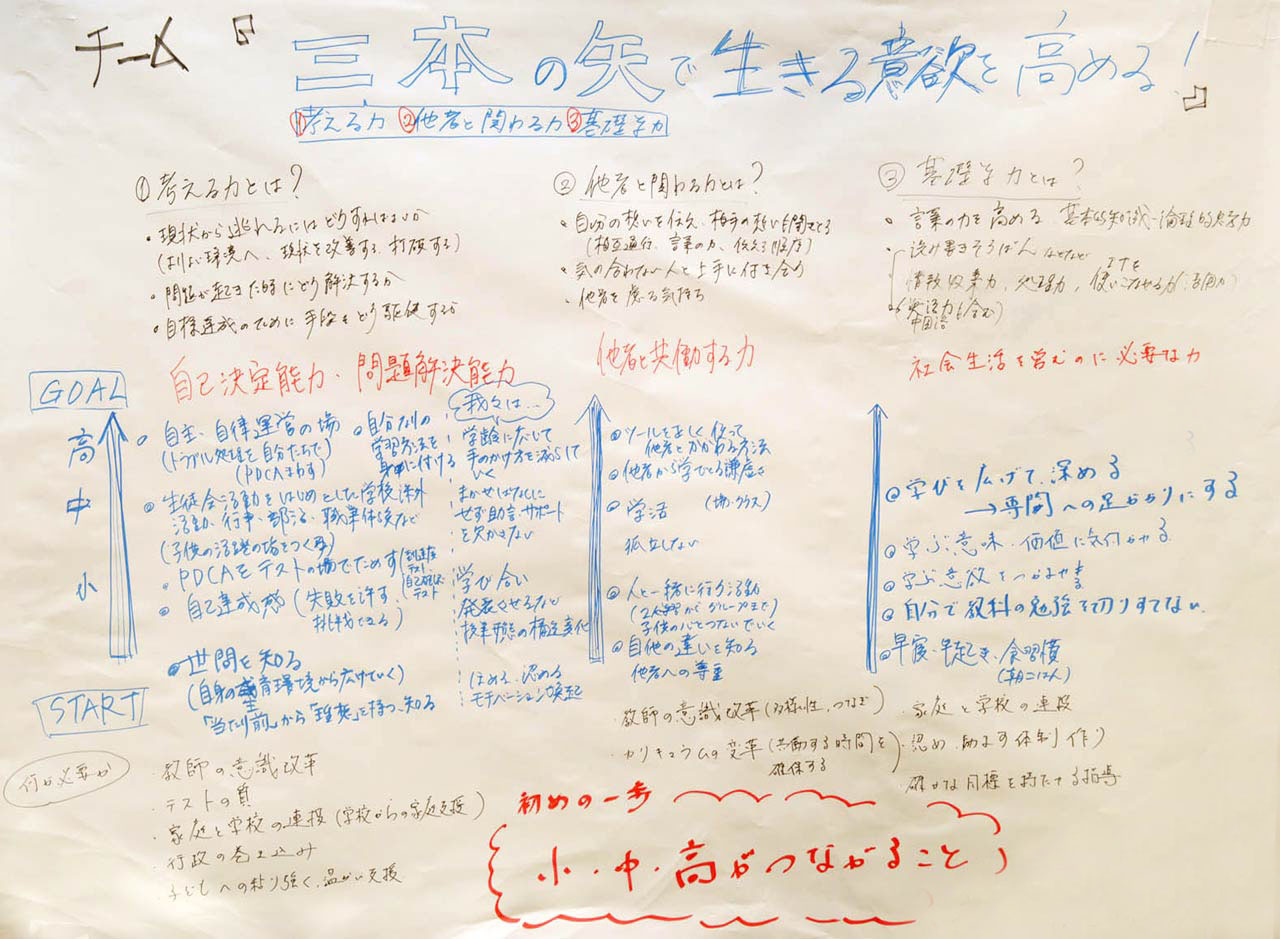 チーム 『三本の矢で生きる意欲を高める!』
①考える力 ②他者と関わる力 ③基礎学力
① 考える力とは?
・現状から逃れるにはどうすればよいか
(よりよい環境へ、現状を改善する、打破する)
・問題が起きた時にどう解決するか
・目標達成のために手段をどう駆使するか
自己決定能力・問題解決能力
② 他者と関わる力とは?
・自分の想いを伝え、相手の想いを聞きとる
(相互通行、言葉の力、伝える)
・気の合わない人と上手に付き合う
・他者を慮る気持ち
他者と共働する力
③ 基礎学力とは?
・言葉の力を高める 基本的知識・論理的思考力
・読み書きそろばん などなど
情報収集力、処理力、ITを使いこなせる力(活用力)
(英語力も含む)
中国語
社会生活を営むのに必要な力
GOAL
高
中
小
START
・自主、自律運営の場
(トラブル処理を自分たちで)
(PDCAまわす)
・自分なりの
学習方法を
身に付ける
・生徒会活動をはじめとした学校内外
活動、行事・部活・職業体験など
(子供の活躍の場をつくる)
・PDCAをテストの場でためす
・自己達成感(失敗を許す、
挑戦できる)
・世間を知る
(自身の生育環境から広げていく)
「当たり前」から「疑問」を持つ、知る
我々は…
学齢に応じて
手のかけ方を減らして
いく
まかせっぱなしに
せず助言・サポート
を欠かさない
学び合い
発表させるなど
授業形態の構造変化
ほめる、認める
モチベーション喚起
・ツールを正しく使って
他者とかかわる方法
・他者から学びとる謙虚さ
・学活 (場・クラス)
孤立しない
・人と一緒に行う活動
(2人組からグループまで)
子供の心とつないでいく
・自他の違いを知る
他者への尊重
・学びを広げて、深める
→専門への足がかりにする
・学ぶ意味・価値に気付かせる
・学ぶ意欲をつかませる
・自分で教科の勉強を切りすてない
・早寝・早起き、食習慣
(朝ごはん)
何が必要か
・教師の意識改革
・テストの質
・家庭と学校の連携(学校からの家庭支援)
・行政の巻き込み
・子どもへの粘り強く、温かい支援
・教師の意識改革(多様性、つなぎ)
・カリキュラムの変革(共働する時間を
確保する)
・家庭と学校の連携
・認め、励ます体制作り
確かな目標を持たせる指導
初めの一歩
小・中・高がつながること